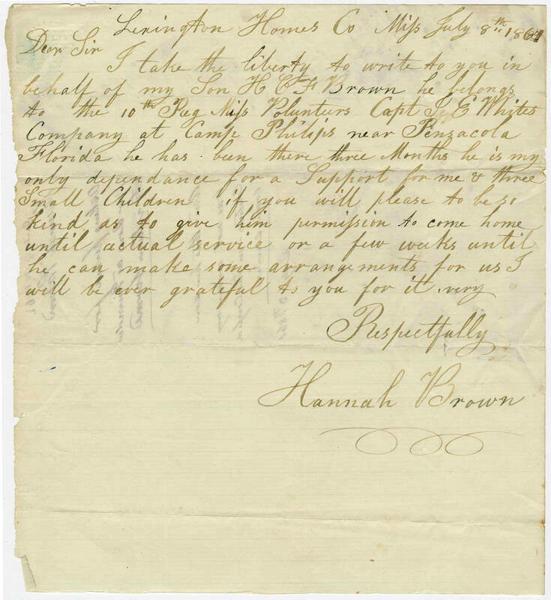 Lexington Homes Co Miss July 8th 1861
Dear Sir
I take the liberty to write to you in
behalf of my Son H C F Brown he belongs
to the 10th Reg Miss Volunters Capt J E Whites
Company at Camp Philips near Penzacola
Florida he has been there three Months he is my
only dependance for a Support for me & three
Small Children if you will please to be so
kind as to give him permission to come home
until actual service or a few weeks until
he can make some arrangements for us I
will be ever grateful to you for it very
Respectfully
Hannah Brown